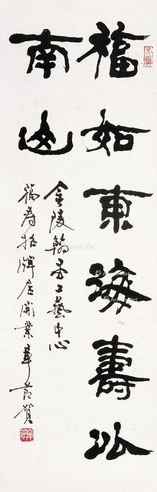 福如東海壽比
南山
金陵翰墨工藝中心
福壽招牌店開業賀